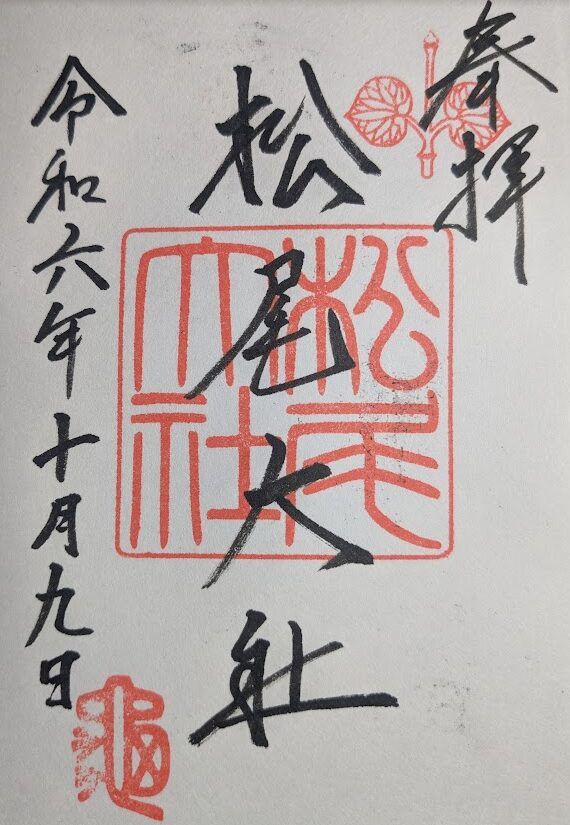 奉拝
松尾大社
松尾大社
令和六年十月九日
亀